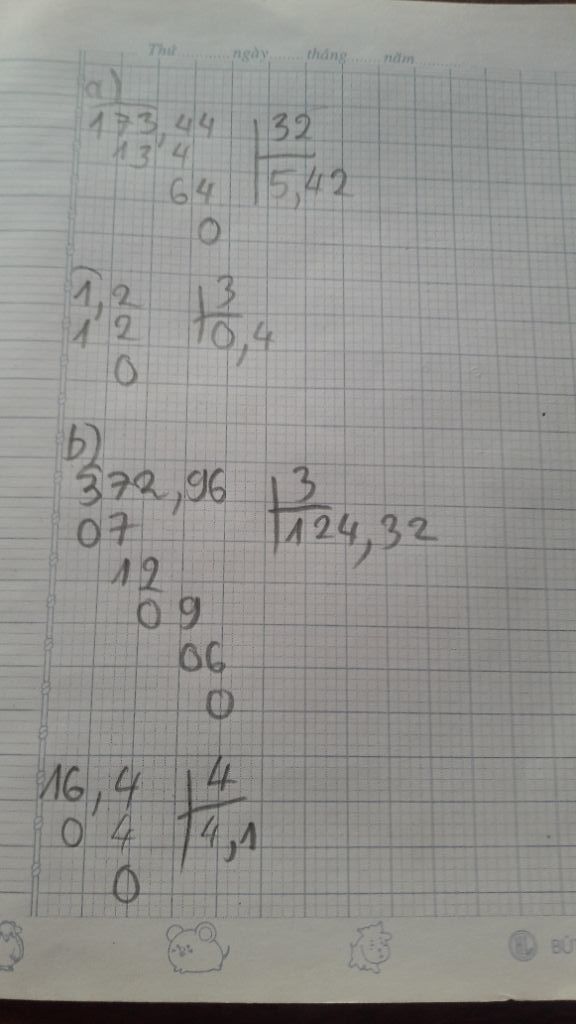 Thứ.............ngày.........tháng.........năm............
a)
173,44 32
13 4 5,42
64
0
1,2 3
1 2 0,4
0
b)
372,96 3
07 124,32
12
0 9
06
0
16,4 4
0 4 4,1
0